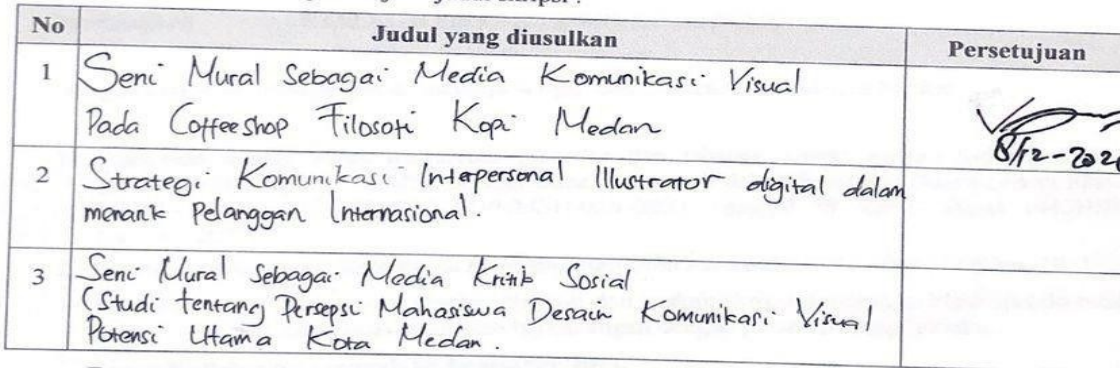 No Judul yang diusulkan Persetujuan
1 Seni Mural Sebagai Media Komunikasi Visual
Pada Coffeeshop Filosofi Kopi Medan
8/12-202
2 Strategi Komunikasi Interpersonal Illustrator digital dalam
menarik Pelanggan Internasional.
3 Seni Mural Sebagai Media Kritik Sosial
(Studi tentang Persepsi Mahasiswa Desain Komunikasi Visual
Potensi Utama Kota Medan.